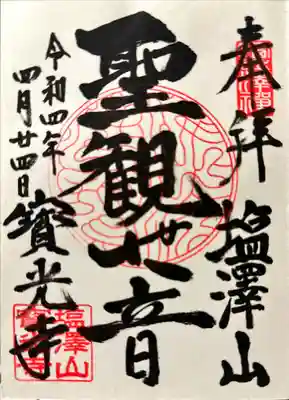 奉拝 塩澤山
聖観世音
令和四年
四月廿四日
寳光寺
塩澤山